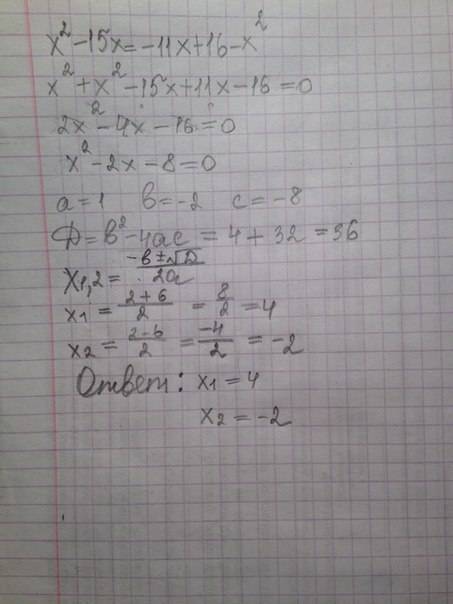 x² - 15x = -11x + 16 - x²
x² + x² - 15x + 11x - 16 = 0
2x² - 4x - 16 = 0
x² - 2x - 8 = 0
a = 1 b = -2 c = -8
D = b² - 4ac = 4 + 32 = 36
x₁,₂ = (-b ± √D) / 2a
x₁ = (2 + 6) / 2 = 8/2 = 4
x₂ = (2 - 6) / 2 = -4/2 = -2
Ответ: x₁ = 4
x₂ = -2